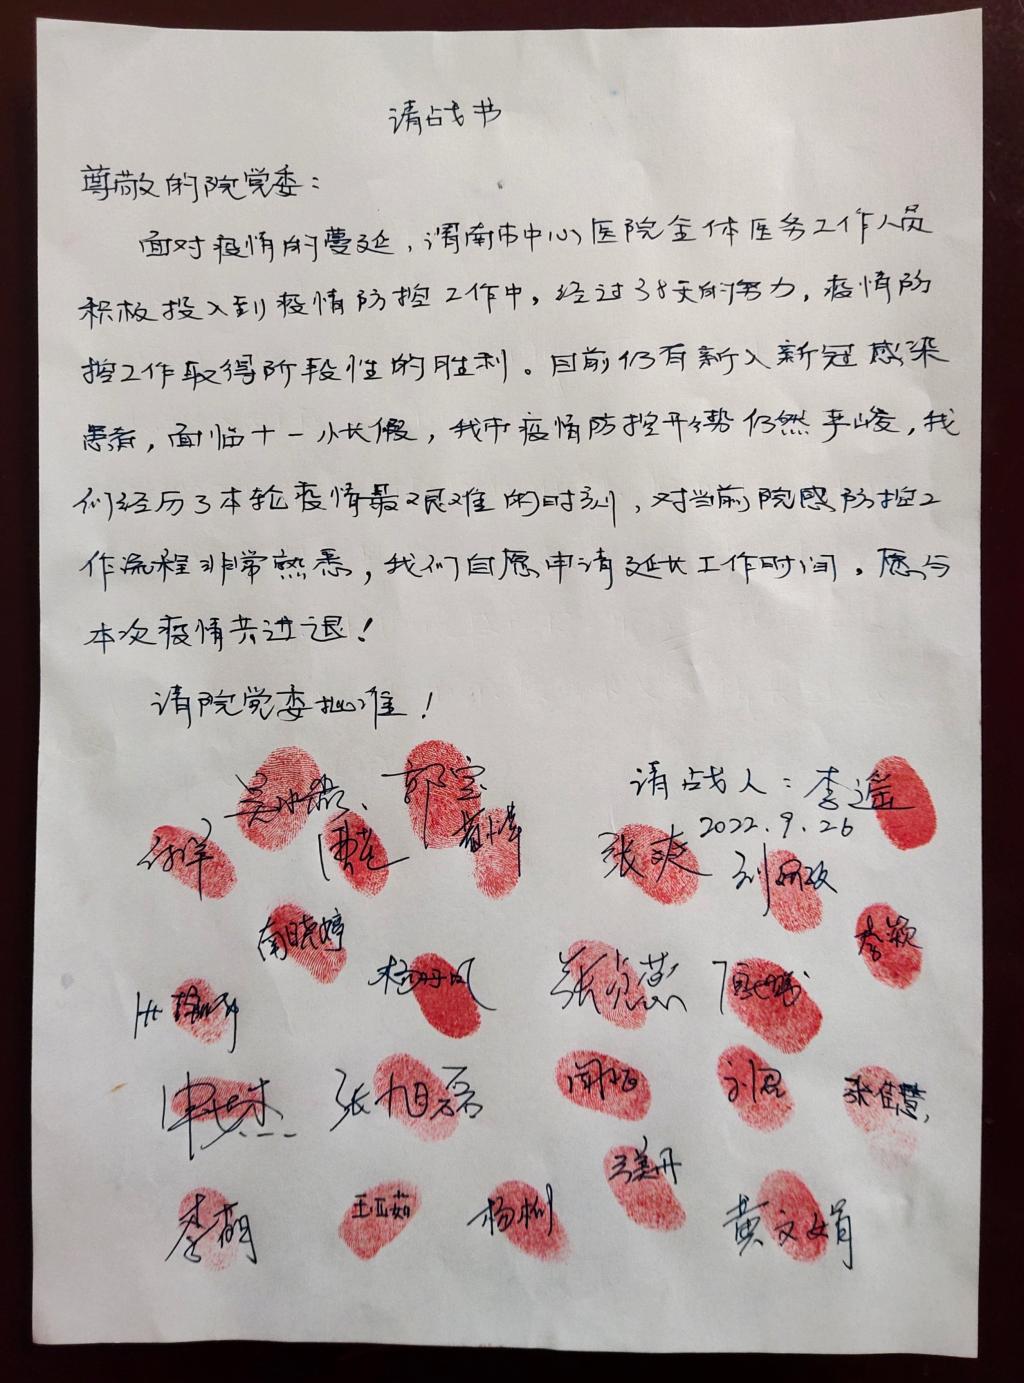 请战书
尊敬的院党委：
面对疫情的蔓延，渭南市中心医院全体医务工作人员
积极投入到疫情防控工作中，经过38天的努力，疫情防
控工作取得阶段性的胜利。目前仍有新入新冠感染
患者，面临十一小长假，我市疫情防控形势仍然严峻，我
们经历了本轮疫情最艰难的时刻，对当前院感防控工
作流程非常熟悉，我们自愿申请延长工作时间，愿与
本次疫情共进退！
请院党委批准！
请战人：李遥
2022.9.26
郭宝
张爽
南晓婷
杨丹凤
张旭磊
张佳慧
王亚茹
黄文娟